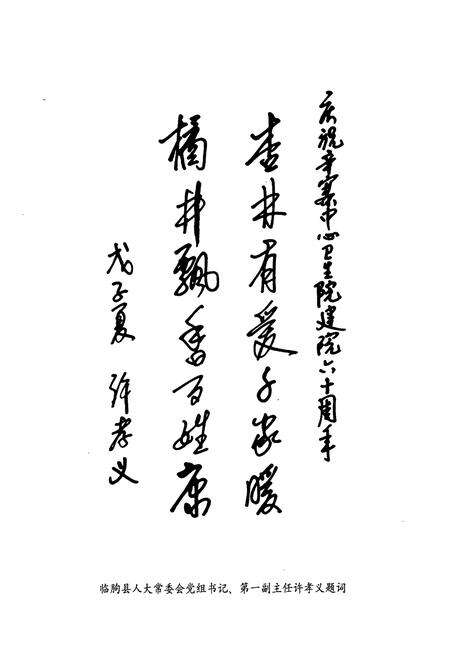 庆祝辛寨中心卫生院建院六十周年
杏林有爱千家暖
橘井飘香百姓康
戊子夏 许孝义
临朐县人大常委会党组书记、第一副主任许孝义题词